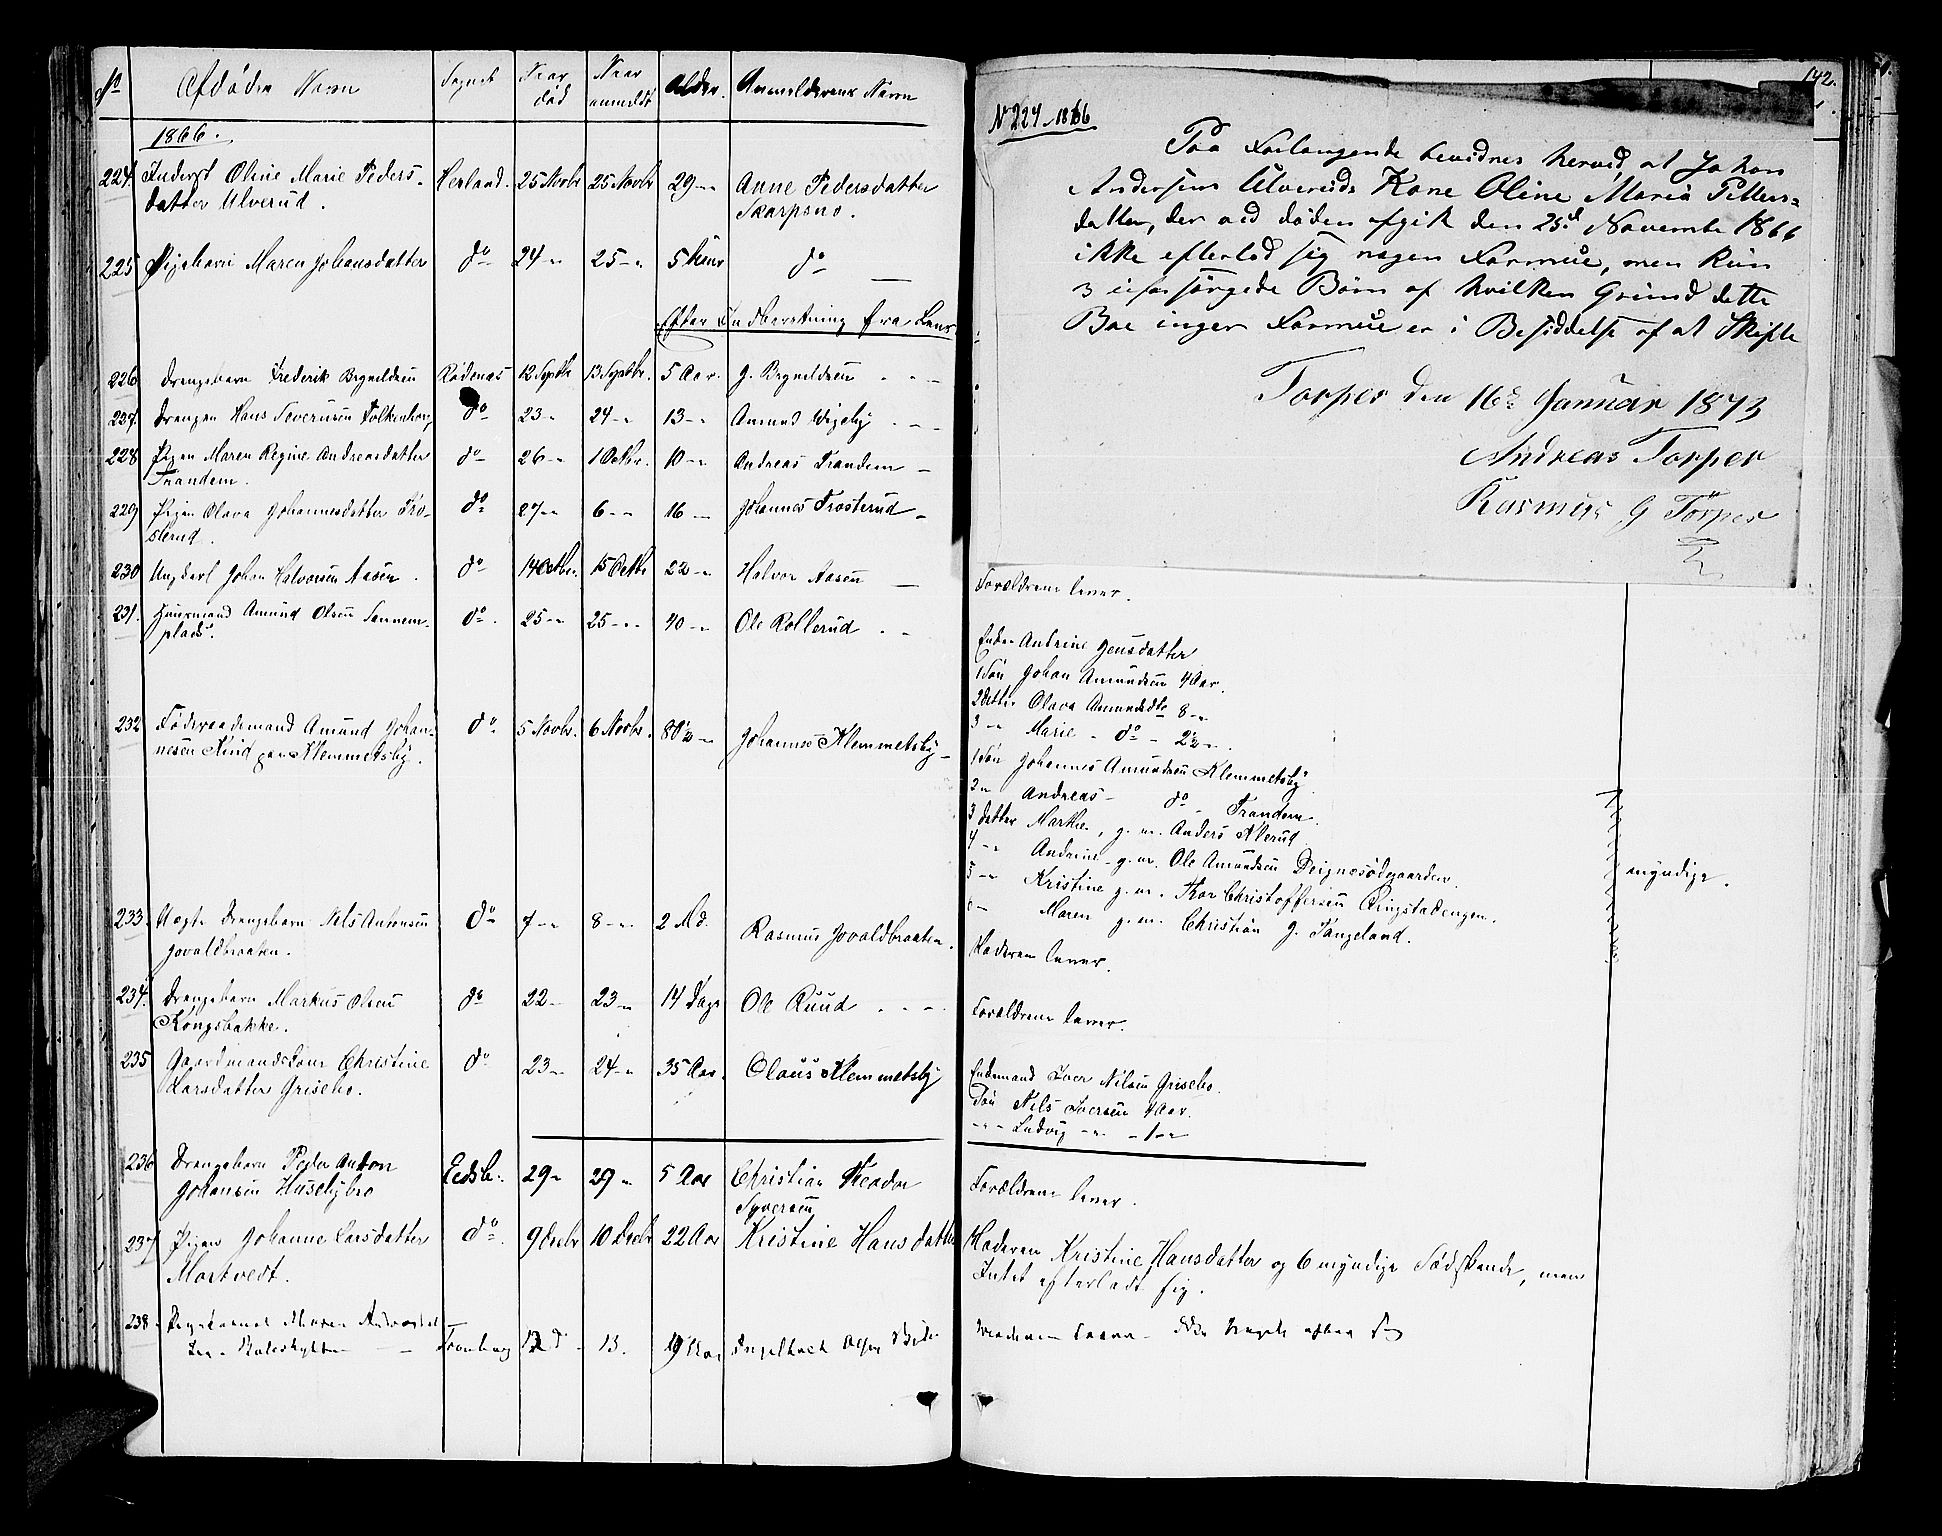 No Afdødes Navn Sognet Naar død Naar anmeldt Alder. Anmelderens Navn
1866.
224. Inderst Oline Marie Peders- Herland. 25 Novbr 25 Novbr 29 -„- Anne Pedersdatter
datter Ulverud. Skarpsno.
225 Pigebarn Maren Johansdatter do 24 -„- 25 -„- 5 do
Efter Indberetning fra Lens
226 Drengebarn Frederik Brynildsen Rødenæs 12 Septbr 13 Septbr. 5 Aar. J. Brynildsen
227. Drengen Hans Severinsen do 23 -„- 24 -„- 13 -„- Amund Vigeby
228 Pigen Maren Regine Andreasdatter do 26 -„- 1 Octbr. 10 -„- Andreas Trandem
Trandem.
229 Pigen Olava Johannesdatter Tro- do 27 -„- 6 -„- 16 - Johannes Trosterud
sterud.
230 Ungkarl Johan Halvorsen Aasen. do 14 Octbr. 15 Octbr 22 -„- Halvor Aasen
231. Huusmand Amund Olsen do. 25 -„- 25 -„- 40 -„- Ole Rollerud
plads.
232 Føderaadsmand Amund Johan- do 5 Novbr. 6 Novbr. 80½ -„- Johannes Klemmetsby
nesen paa Klemmetsby.
233. Drengebarn Nils Antonsen do 7 -„- 8 -„- 2 Md. Rasmus Jovaldbraaten.
Jovaldbraaten.
234. Drengebarn Markus Olsen do 22 - 23 -„- 14 Dage Ole Ruud
Kongsbakke.
235 Gaardmandskone Christine do 23 -„- 24 -„- 35 Aar. Claus Klemmetsby
Larsdatter Grisebo.
236 Drengebarn Peder Anton Eedsb. 29 -„- 29 -„- 5 Aar Christian Theodor
Johansen Huselybro Syversen
237 Pigen Johanne Larsdatter do. 9 Decbr 10 Decbr 22 Aar Kristine Hansdatter
Mortvedt.
238. Maren 13. Engelbret
142.
N 224 - 1866
Paa Forlangende bevidnes herved, at Johan
Andersens Ulveruds Kone Oline Maria Petters=
datter, der ved døden afgik den 25d November 1866
ikke efterlod sig nogen Formue, men kun
3 uforsørgede Børn af hvilken Grund dette
Boe ingen Formue er i Besiddelse af at Skifte
Torper den 16de Januar 1873
Andreas Torper
Rasmus G Torper
Forældrene lever.
Enken Andrine Jensdatter
1 Søn Johan Amundsen 4 Aar.
2 Datter Olava Amundsdtr 8 -„-
3 -„- Marie - do - 2½ -„-.
1 Søn Johannes Amundsen Klemmetsby
2 -„- Andreas - do - Trandem.
3 Datter Marthe, g. m. Anders
4 -„- Andrine - g. m. Ole Amundsen
5 -„- Kristine g. m. Thor Christoffersen Ringstadengen.
6 - Maren g. m. Christian J. Tangeland.
myndige.
Moderen lever.
Forældrene lever.
Enkemand Iver Nilsen Grisebo.
Søn Nils Iversen 4 Aar.
-„- Ludvig -„- - 1 -„-
Forældrene lever.
Moderen Kristine Hansdatter og 6 myndige Sødskende, men
Intet efterladt sig.